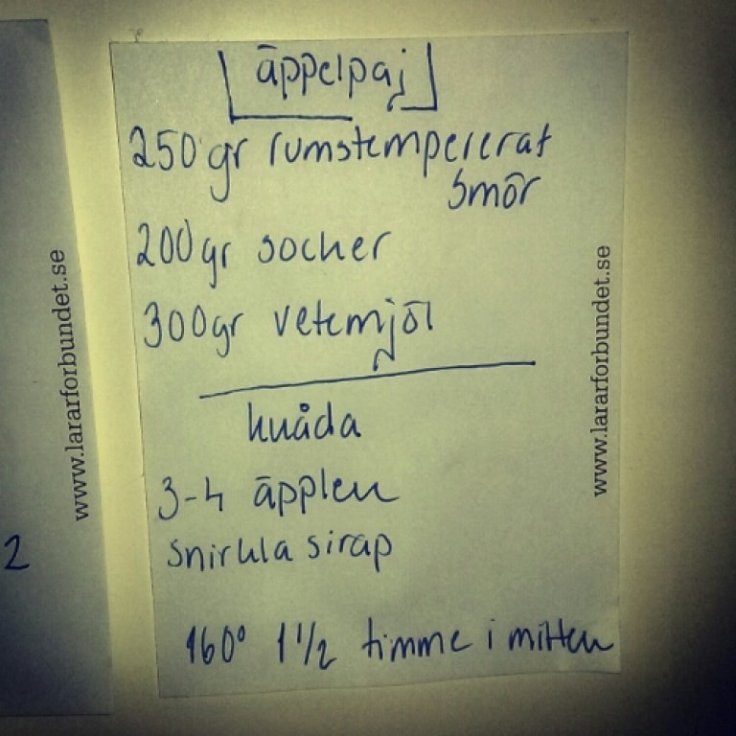 äppelpaj
250 gr rumstempererat
smör
200gr socker
300gr vetemjöl
knåda
3-4 äpplen
snirkla sirap
160° 1 1/2 timme i mitten
www.lararforbundet.se
www.lararforbundet.se
2